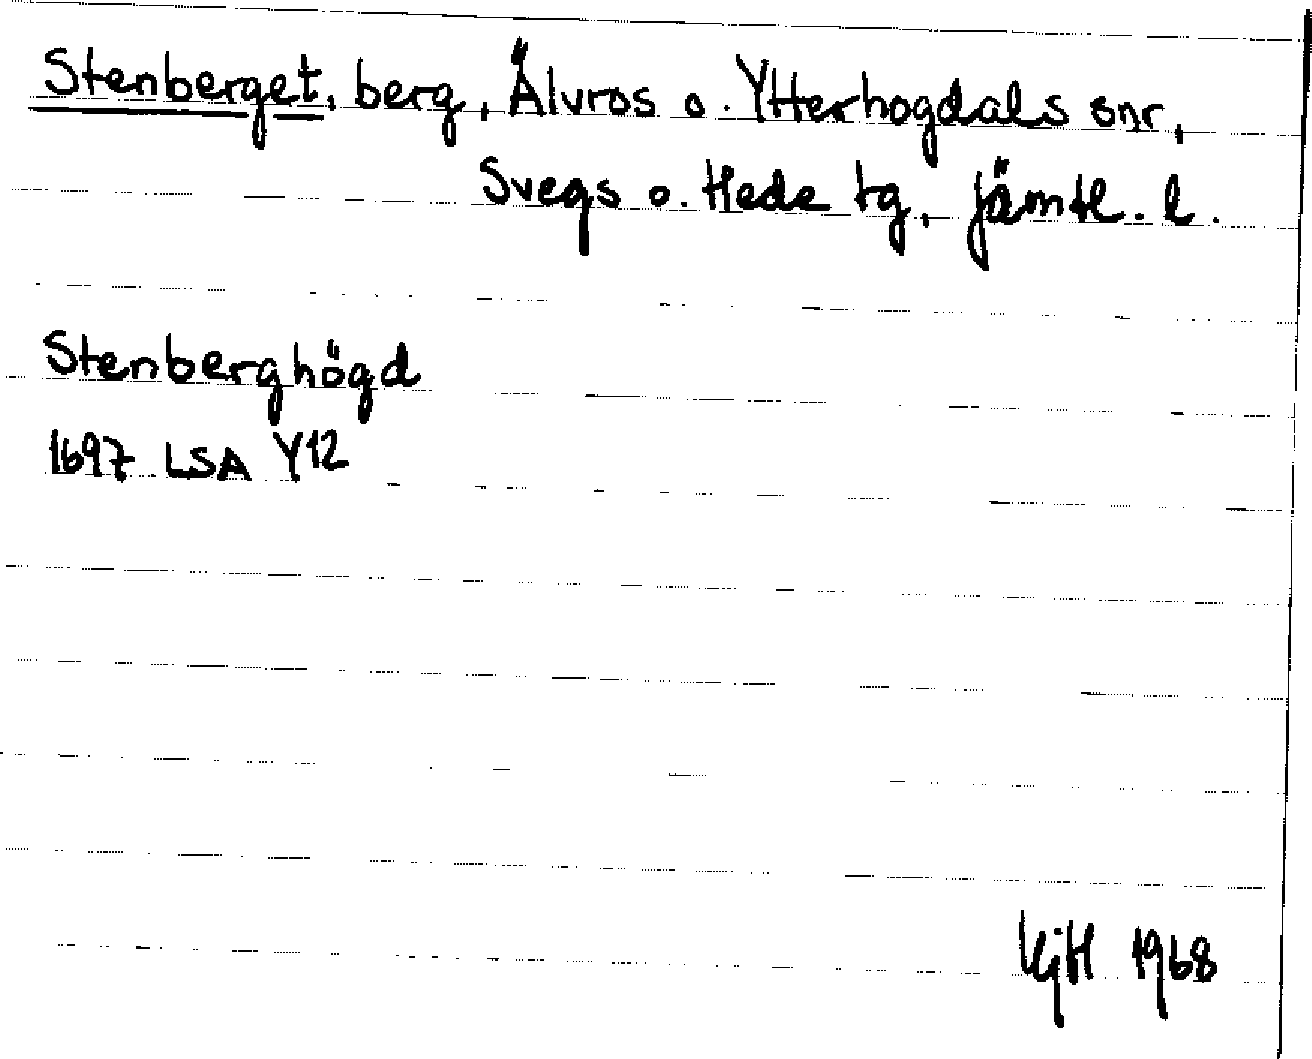 Stenberget, berg, Älvros o. Ytterhogdals snr,
Svegs o. Hede tg, Jämtl. l.
Stenberghögd
1697 LSA Y12
KjH 1968